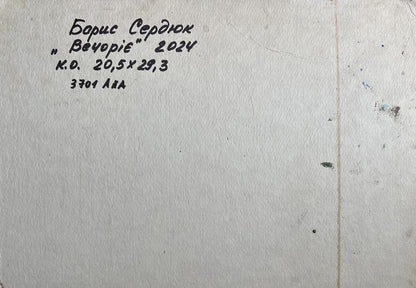 Борис Сердюк
„Вечоріє" 2024
к.о. 20,5×29,3
3701 Ала